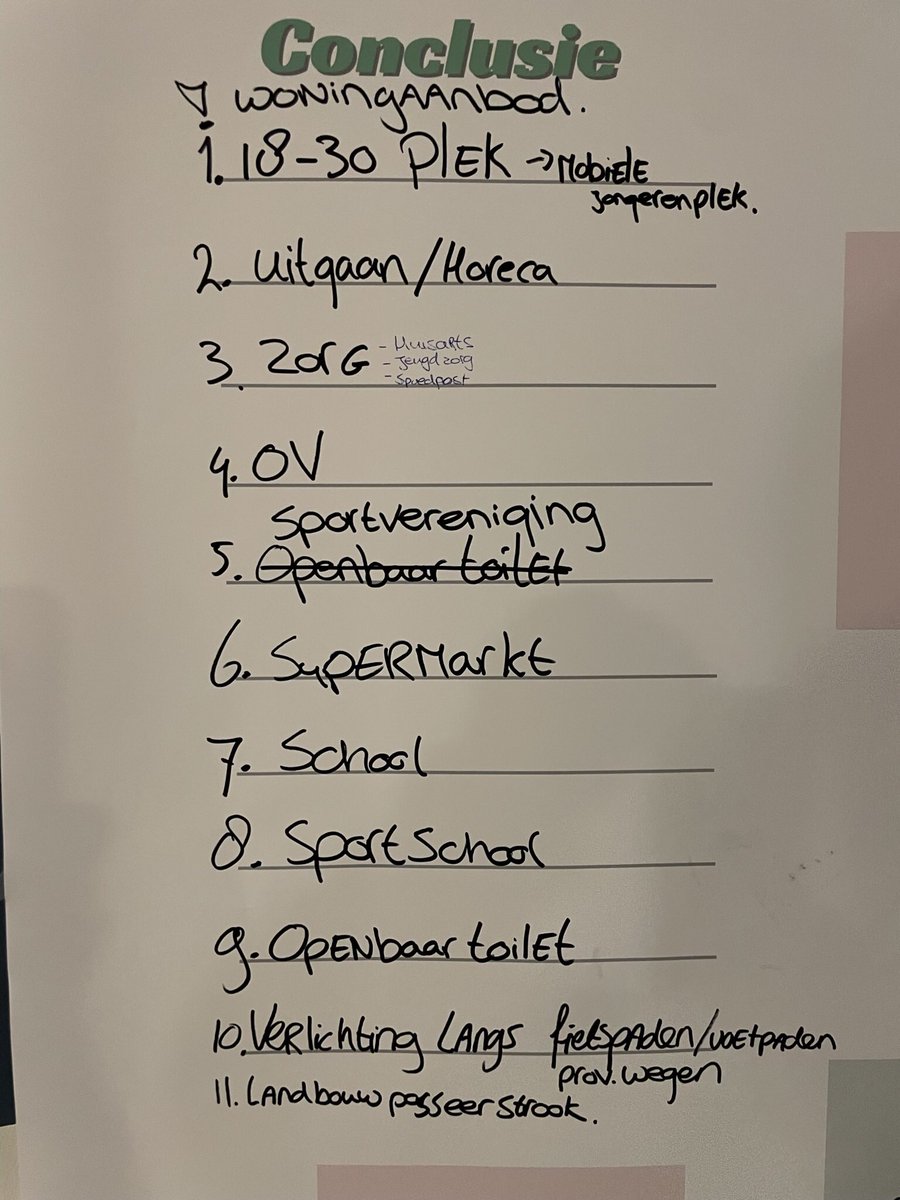 Conclusie
! WONINGAANBOD.
1. 18-30 PLEK → MOBIELE
jongerenplek.
2. Uitgaan/Horeca
3. Zorg
- Huisarts
- Jeugdzorg
- Spoedpost
4. OV
Sportvereniging
5. Openbaar toilet
6. Supermarkt
7. School
8. Sportschool
9. Openbaar toilet
10. Verlichting langs fietspaden/voetpaden
prov. wegen
11. Landbouw passeer strook.